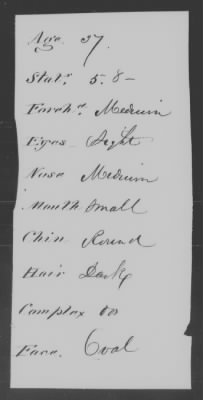 Age. 37.
Statr. 5. 8 –
Forehd. Medium
Eyes – Light
Nose Medium
Mouth Small
Chin Round
Hair Dark
Complex do
Face. Oval